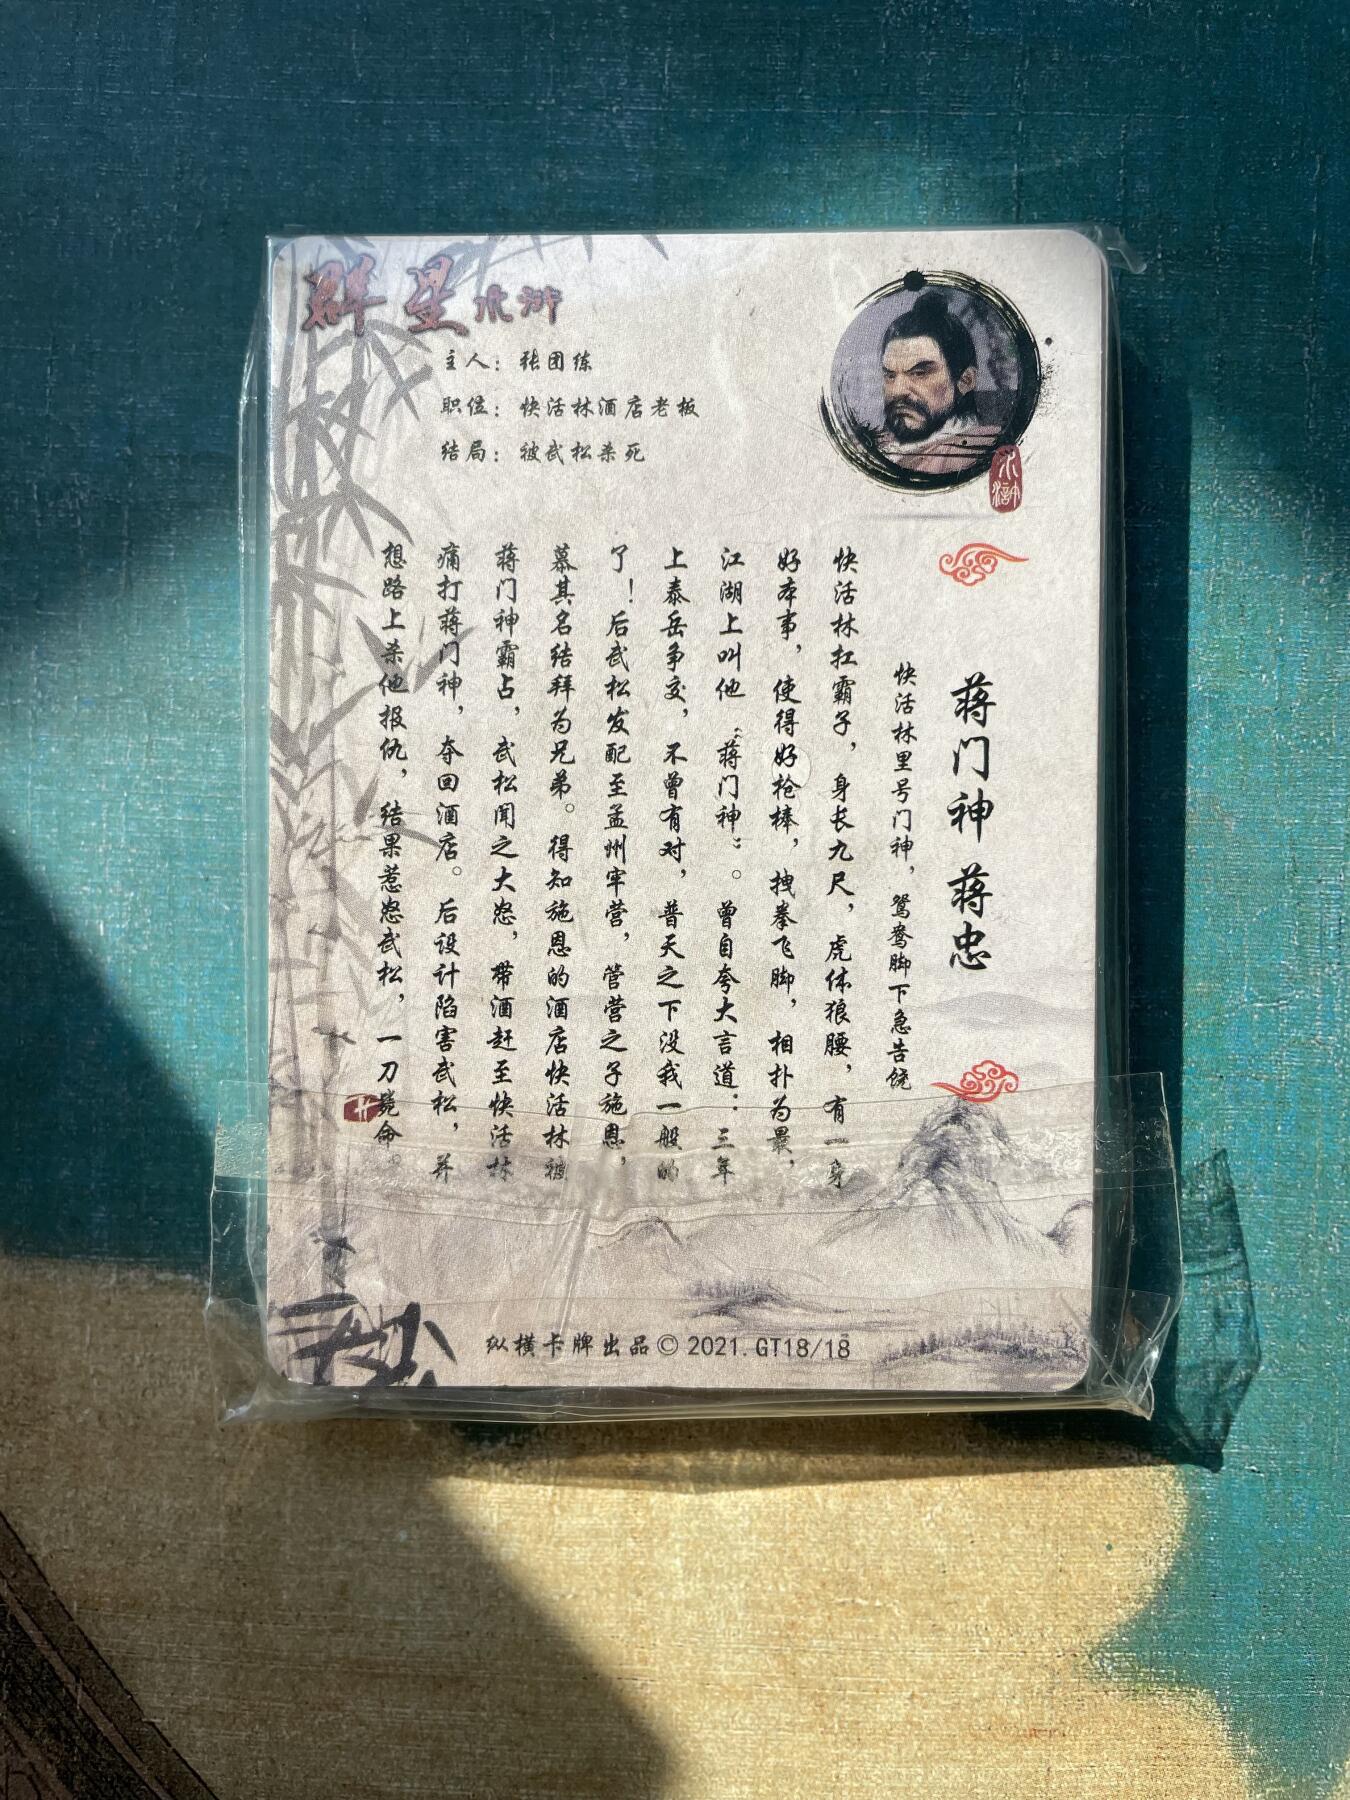 群星水浒
主人：张团练
职位：快活林酒店老板
结局：被武松杀死
水浒
蒋门神 蒋忠
快活林里号门神，鸳鸯脚下急告饶
快活林扛霸子，身长九尺，虎体狼腰，有一身
好本事，使得好枪棒，拽拳飞脚，相扑为最，
江湖上叫他“蒋门神”。曾自夸大言道：三年
上泰岳争交，不曾有对，普天之下没我一般的
了！后武松发配至孟州牢营，管营之子施恩，
慕其名结拜为兄弟。得知施恩的酒店快活林被
蒋门神霸占，武松闻之大怒，带酒赶至快活林
痛打蒋门神，夺回酒店。后设计陷害武松，并
想路上杀他报仇，结果惹怒武松，一刀毙命。
纵横卡牌出品© 2021.GT18/18